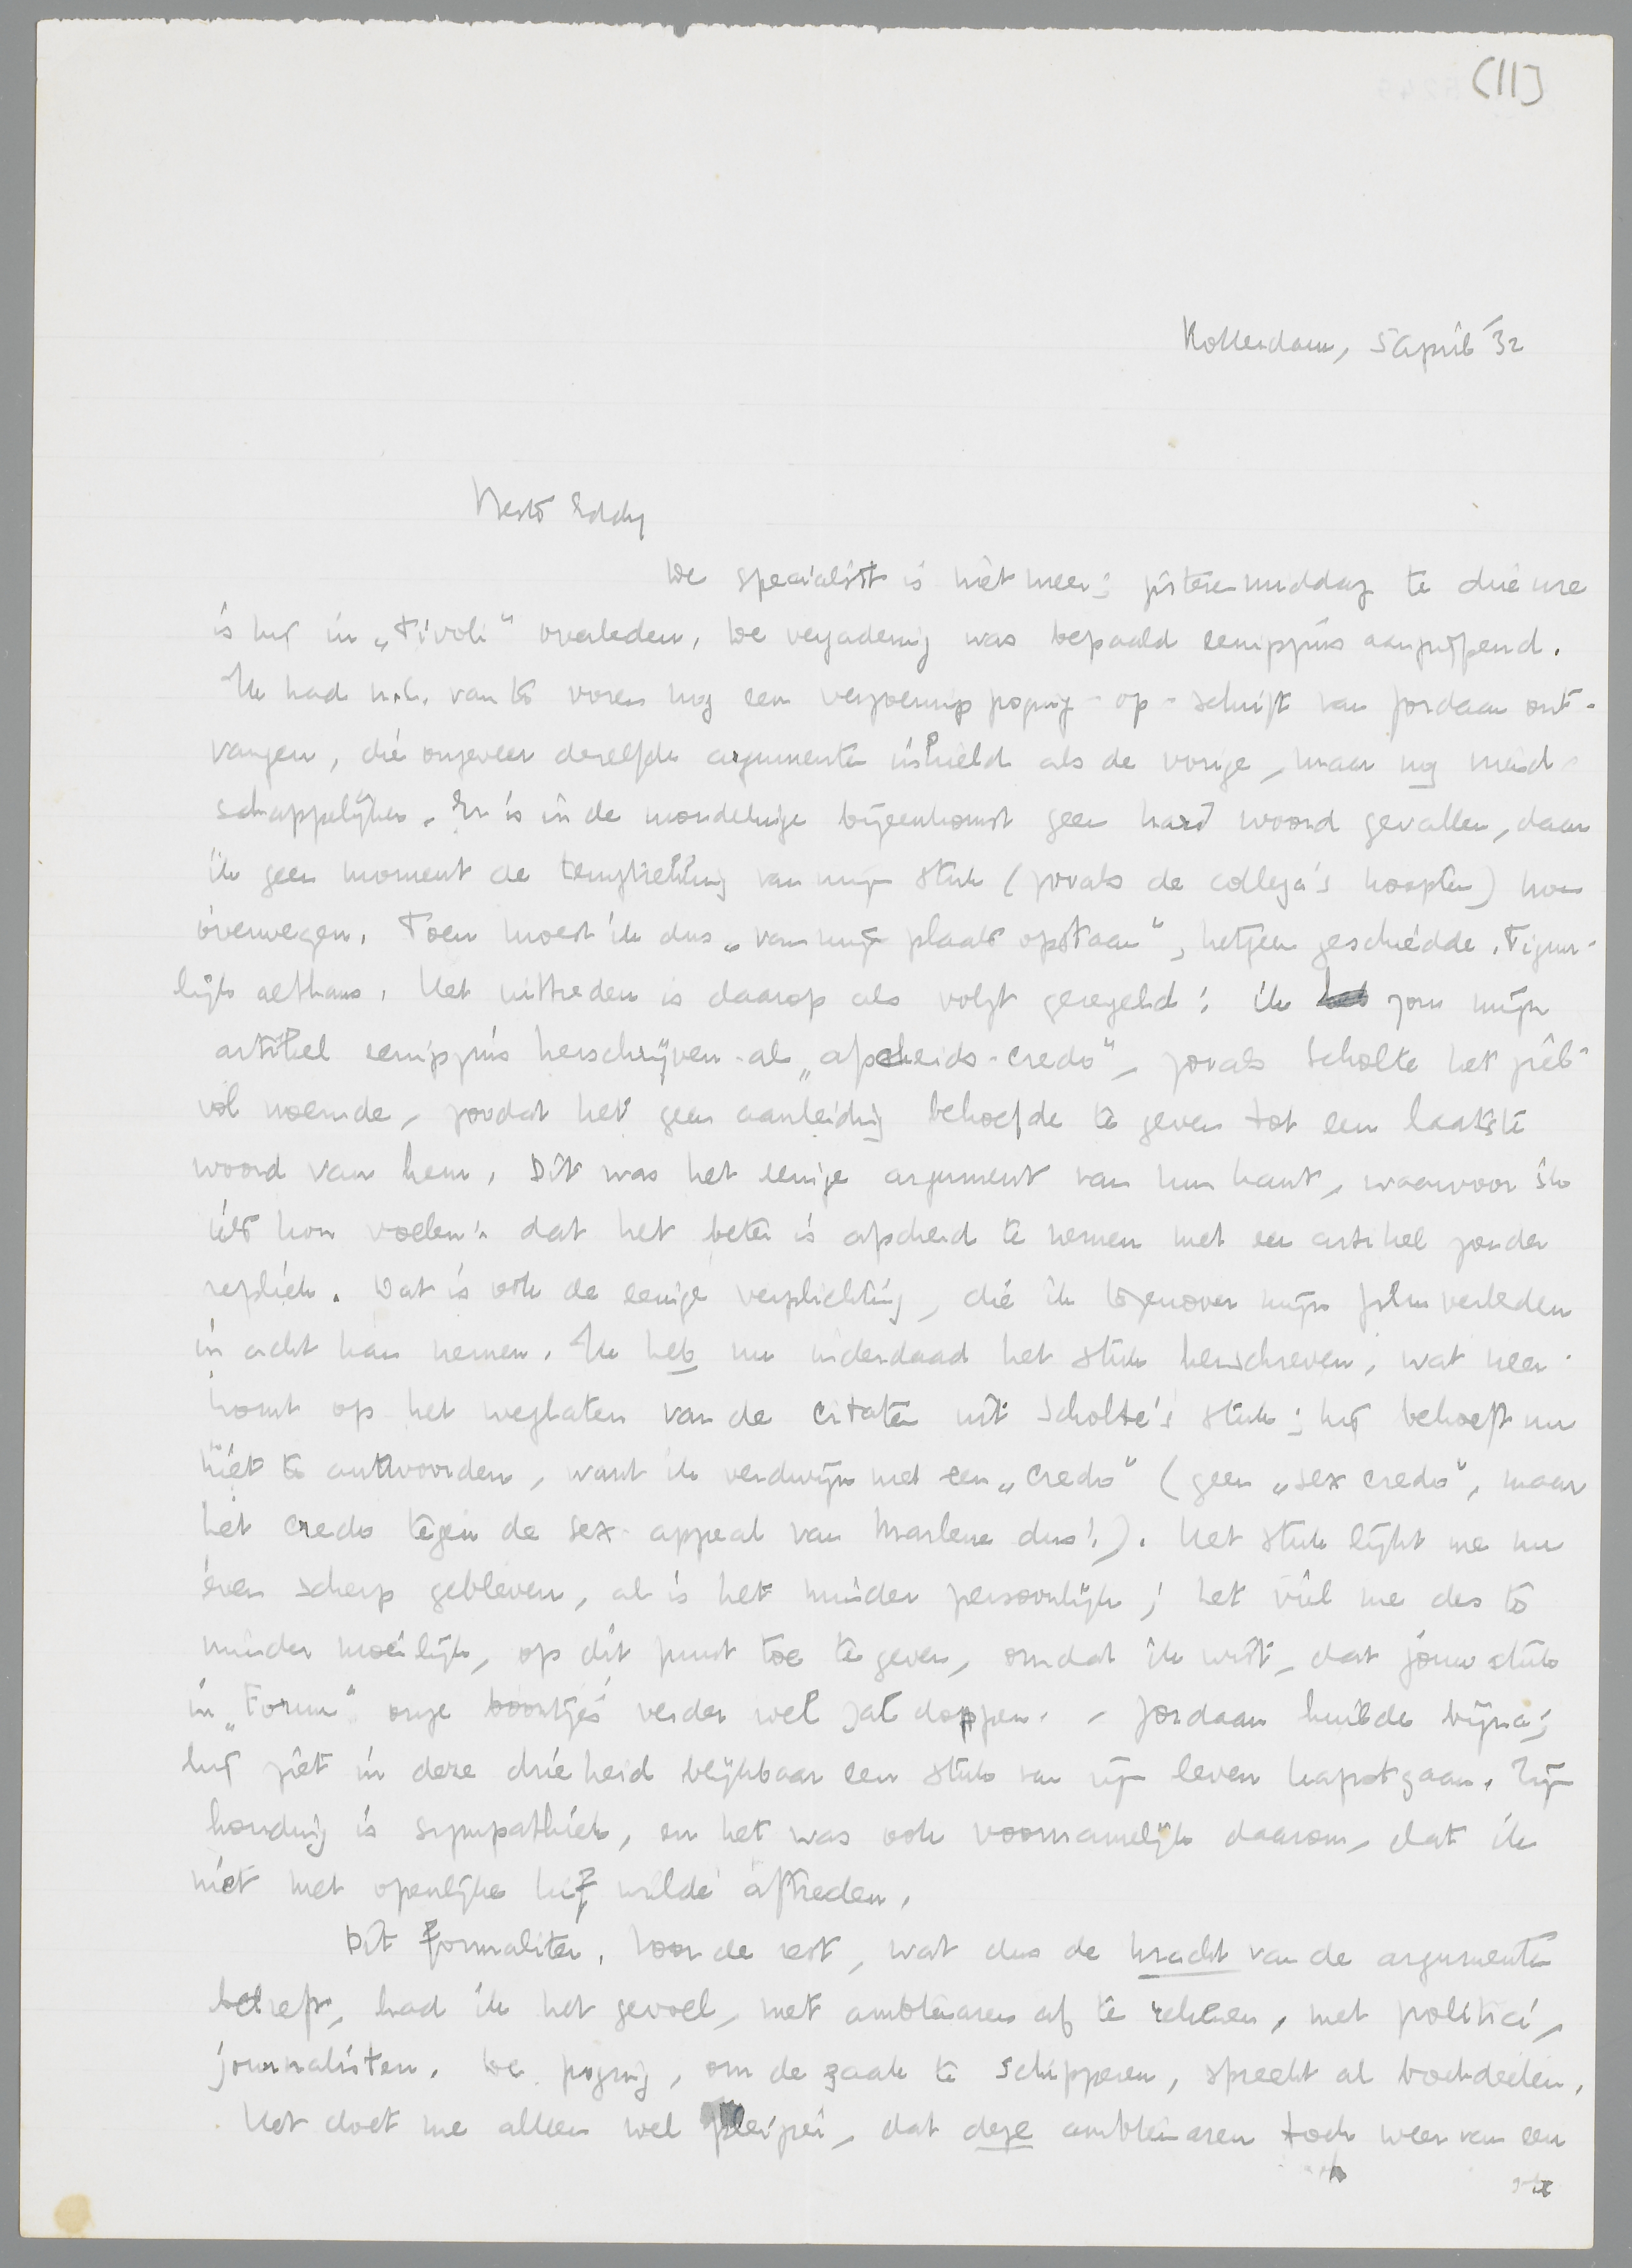 (11)
Rotterdam, 5 April '32
Beste Eddy
De specialist is niet meer; gisterenmiddag te drie ure
is hij in „Tivoli" overleden. De vergadering was bepaald eenigszins aangrijpend.
Ik had n.l. van te voren nog een verzoeningspoging-op-schrift van Jordaan ont-
vangen, die ongeveer dezelfde argumenten inhield als de vorige, maar nog vriend-
schappelijker. Er is in de mondelinge bijeenkomst geen hard woord gevallen, daar
ik geen moment de terugtrekking van mijn stuk (zooals de collega's hoopten) kon
overwegen. Toen moest ik dus „van mijn plaats opstaan", hetgeen geschiedde. Figuur-
lijk althans. Het uittreden is daarop als volgt geregeld: ik zou mijn
artikel eenigszins herschrijven als „afscheids-credo", zooals Scholte het ge-
vol noemde, zoodat het geen aanleiding behoefde te geven tot een laatste
woord van hem. Dit was het eenige argument van hun kant, waarvoor ik
iets kon voelen: dat het beter is afscheid te nemen met een artikel zonder
repliek. Dat is ook de eenige verplichting, die ik tegenover mijn filmverleden
in acht kan nemen. Ik heb nu inderdaad het stuk herschreven, wat neer-
komt op het weglaten van de citaten uit Scholte's stuk; hij behoeft nu
niet te antwoorden, want ik verdwijn met een „credo" (geen „sex credo", maar
het credo tegen de sex-appeal van Marlene dus!). Het stuk lijkt me nu
even scherp gebleven, al is het minder persoonlijk; het viel me des te
minder moeilijk, op dit punt toe te geven, omdat ik wist, dat jouw stuk
in „Forum" onze boontjes verder wel zal doppen. - Jordaan huilde bijna;
hij ziet in deze drieheid blijkbaar een stuk van zijn leven kapotgaan. Zijn
houding is sympathiek, en het was ook voornamelijk daarom, dat ik
niet met openlijke hij wilde aftreden.
Dit formaliter. Voor de rest, wat dus de kracht van de argumenten
betreft, had ik het gevoel, met ambtenaren af te rekenen, met politici,
journalisten. De poging, om de zaak te schipperen, spreekt al boekdeelen.
Het doet me alleen wel plezier, dat deze ambtenaren toch weer van een